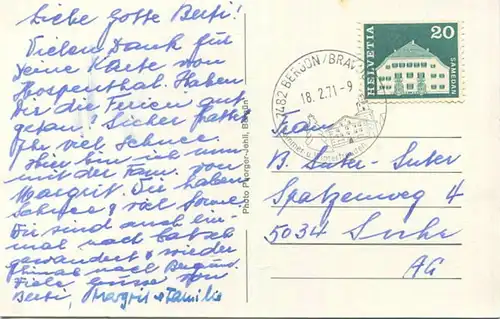 Liebe Gotte Berti!
Vielen Dank für
Deine Karte von
Hospenthal. Haben
Dir die Ferien gut
getan? Sicher hattet
Ihr viel Schnee.
Hier bin ich nun
mit der Fam. von
Margrit. Die haben
Schnee & viel Sonne
Wir sind auch ein-
mal nach Latsch
gewandert & wieder
nach Bergün.
Viele Grüsse von
Berti, Margrit + Familie
Photo Phorger-Jehli, Bergün
7482 BERGÜN/BRAV
18.2.71-9
HELVETIA
20
SAMEDAN
Frau
B. Suter-Suter
Spatzenweg 4
5034 Suhr
AG